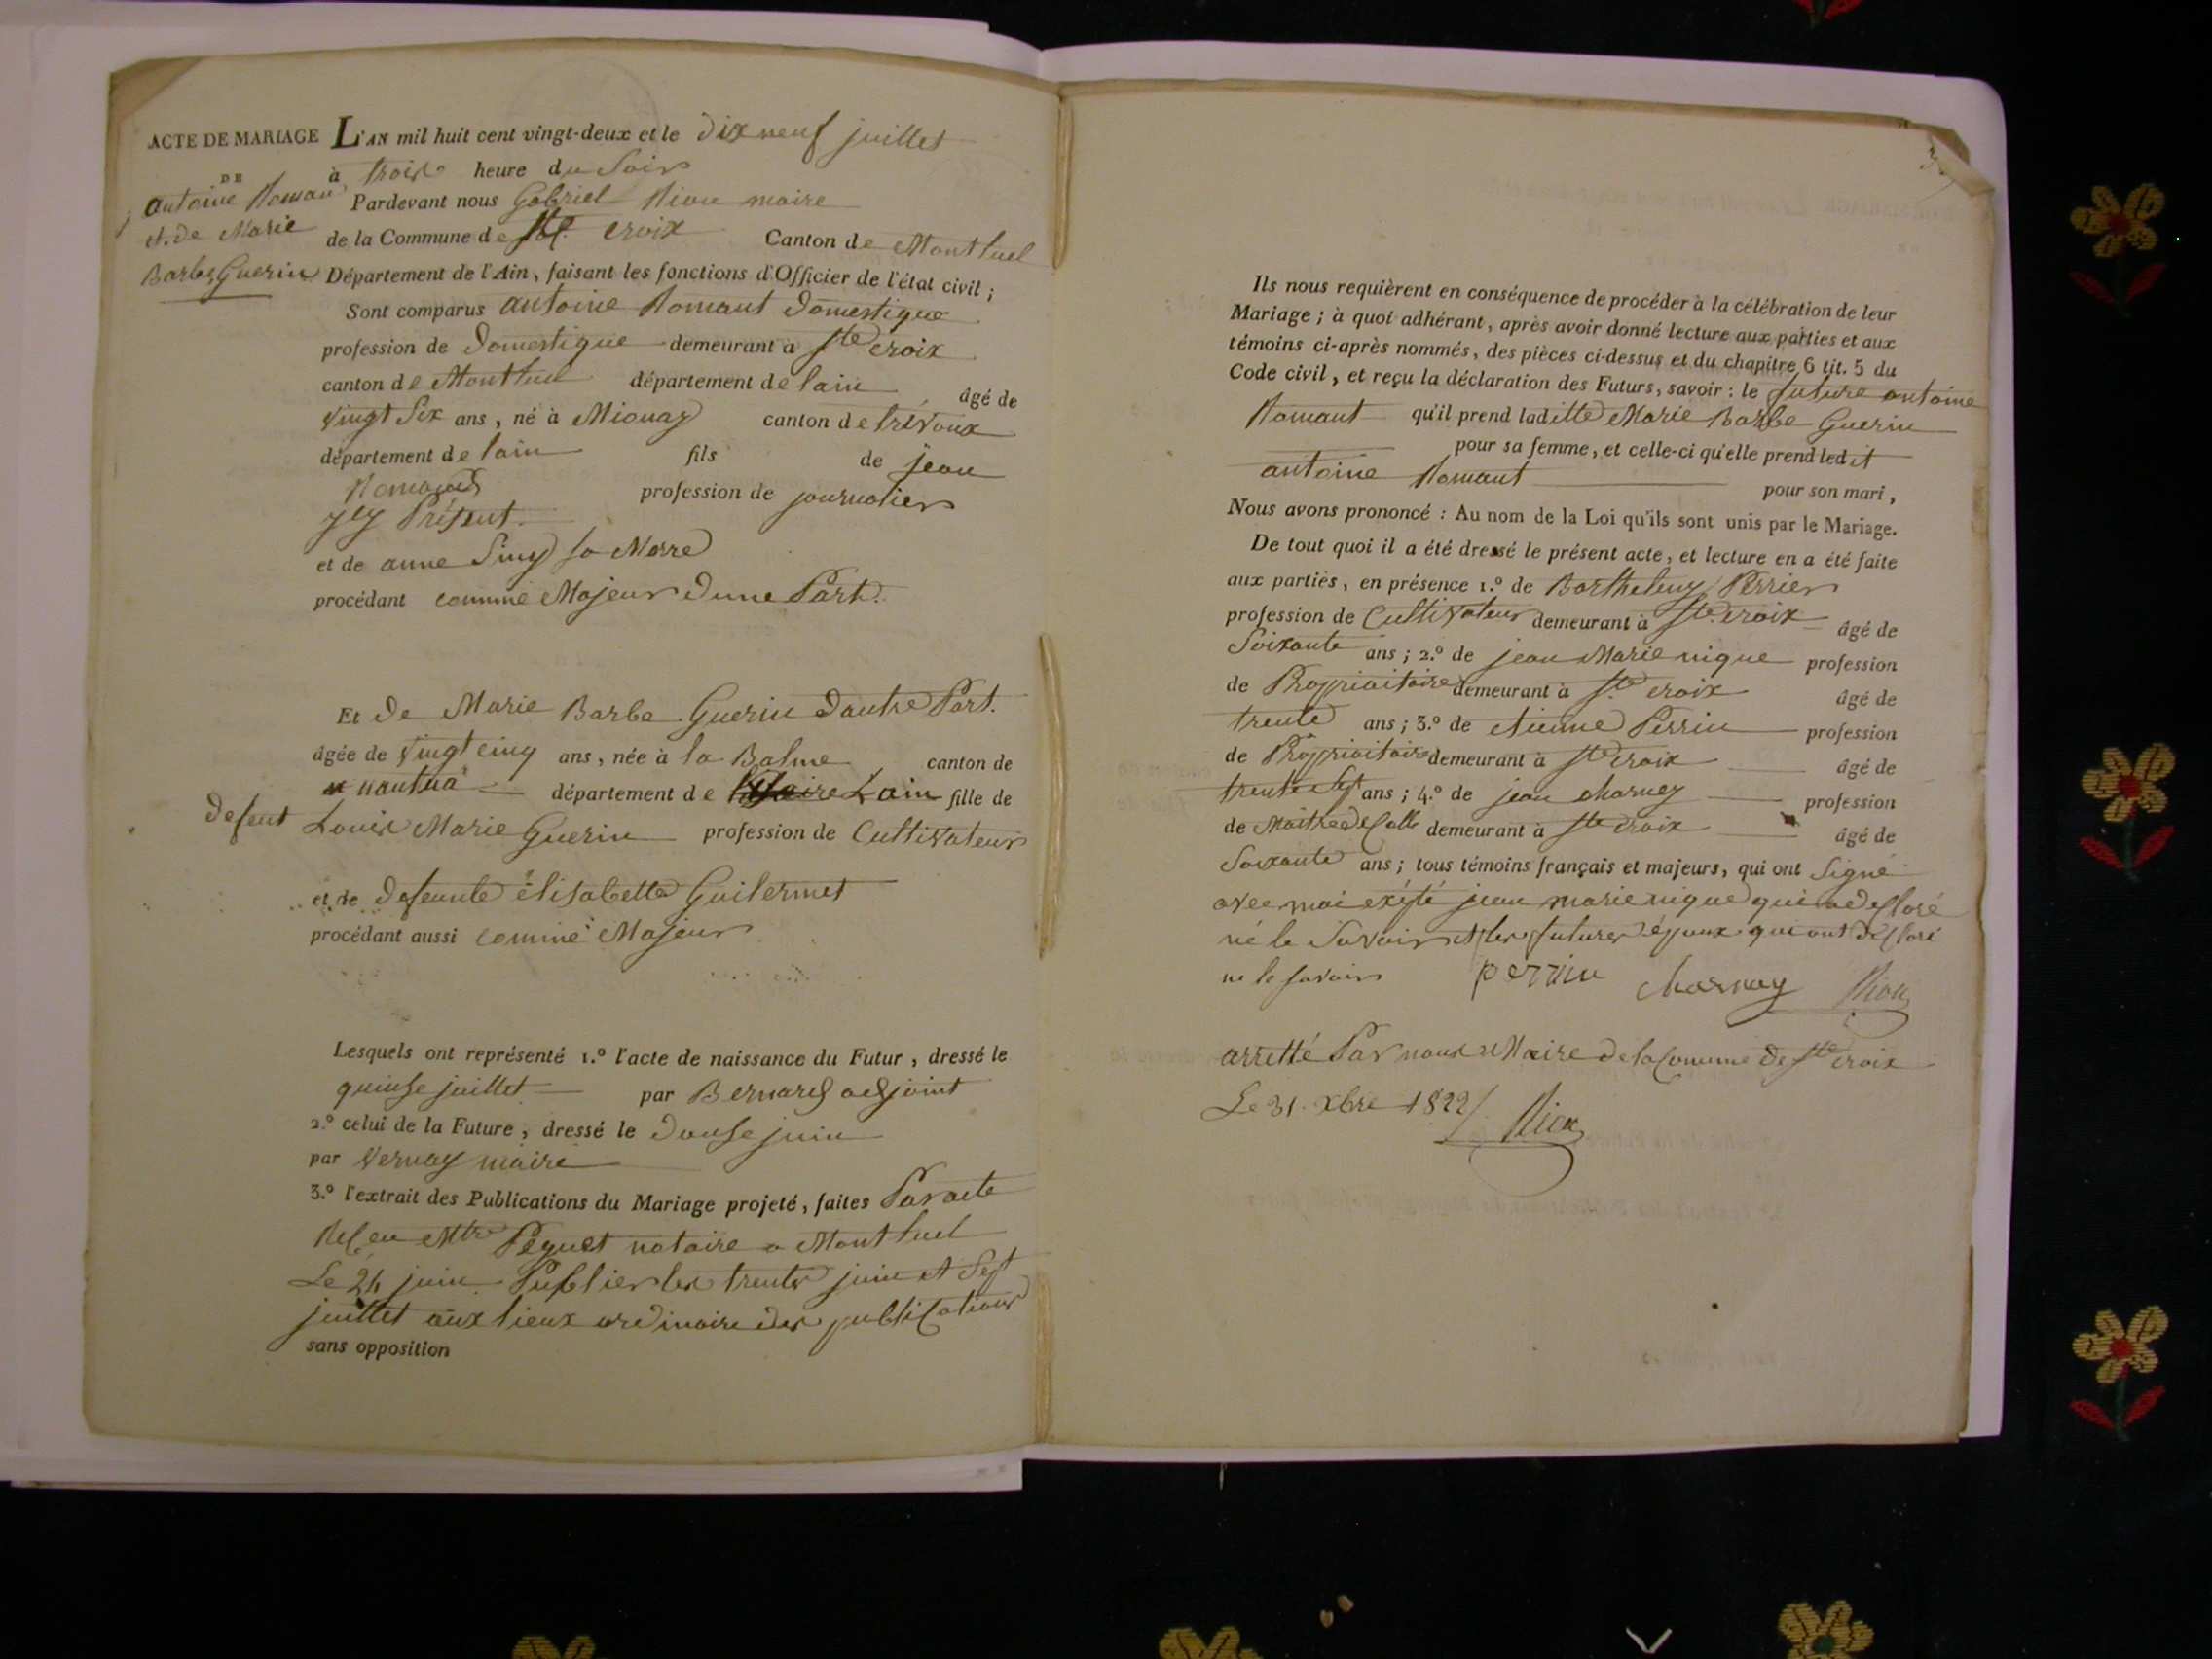 ACTE DE MARIAGE L'AN mil huit cent vingt-deux et le dix neuf juillet
DE à trois heure du Soir
antoine Romau Pardevant nous Gabriel Niou maire
et de Marie de la Commune de Ste. croix Canton de Montluel
Barbe Guerin Département de l'Ain, faisant les fonctions d'Officier de l'état civil ;
Sont comparus antoine Romaut Domestique
profession de Domestique demeurant à Ste croix
canton de Montluel département de lain âgé de
vingt Six ans, né à Mionay canton de trévoux
département de lain fils de jean
profession de journalier
Présent
et de anne Siny sa Merre
procédant comme Majeur Dune Part.
Et De Marie Barbe Guerin Dautre Part.
âgée de vingt cinq ans, née à la Balme canton de
nantua département de Lain fille de
defeut Louis Marie Guerin profession de Cultivateur
et de defeunte élisabette Guilermet
procédant aussi comme Majeur
Lesquels ont représenté 1.º l'acte de naissance du Futur, dressé le
quinse juillet par Bernard adjoint
2.º celui de la Future, dressé le Douse juin
par Vernay maire
3.º l'extrait des Publications du Mariage projeté, faites Par acte
Reçeu Mtre Peguet notaire a Montluel
Le 24 juin Publier les trente juin et Sept
juillet aux lieux ordinaire des publications
sans opposition
Ils nous requièrent en conséquence de procéder à la célébration de leur
Mariage ; à quoi adhérant, après avoir donné lecture aux parties et aux
témoins ci-après nommés, des pièces ci-dessus et du chapitre 6 tit. 5 du
Code civil, et reçu la déclaration des Futurs, savoir : le future antoine
Romaut qu'il prend laditte Marie Barbe Guerin
pour sa femme, et celle-ci qu'elle prend ledit
antoine Romaut pour son mari,
Nous avons prononcé : Au nom de la Loi qu'ils sont unis par le Mariage.
De tout quoi il a été dressé le présent acte, et lecture en a été faite
aux parties, en présence 1.º de Barthelemy Perrier
profession de Cultivateur demeurant à Ste. croix âgé de
Soixante ans ; 2.º de jean Marie nique profession
de Propriaitaire demeurant à Ste croix âgé de
trente ans ; 3.º de etienne Perrin profession
de Propriaitaire demeurant à Ste croix âgé de
trente Sept ans ; 4.º de jean charney profession
de Maitre decolle demeurant à Ste croix âgé de
Soixante ans ; tous témoins français et majeurs, qui ont Signé
avec moi exépté jean marie nique qui a déclaré
né le Savoir et les futures époux qui ont déclaré
ne le savoir perrin charnay Niou
arretté Par nous Maire de la Comune de Ste croix
Le 31. xbre 1822 Niou